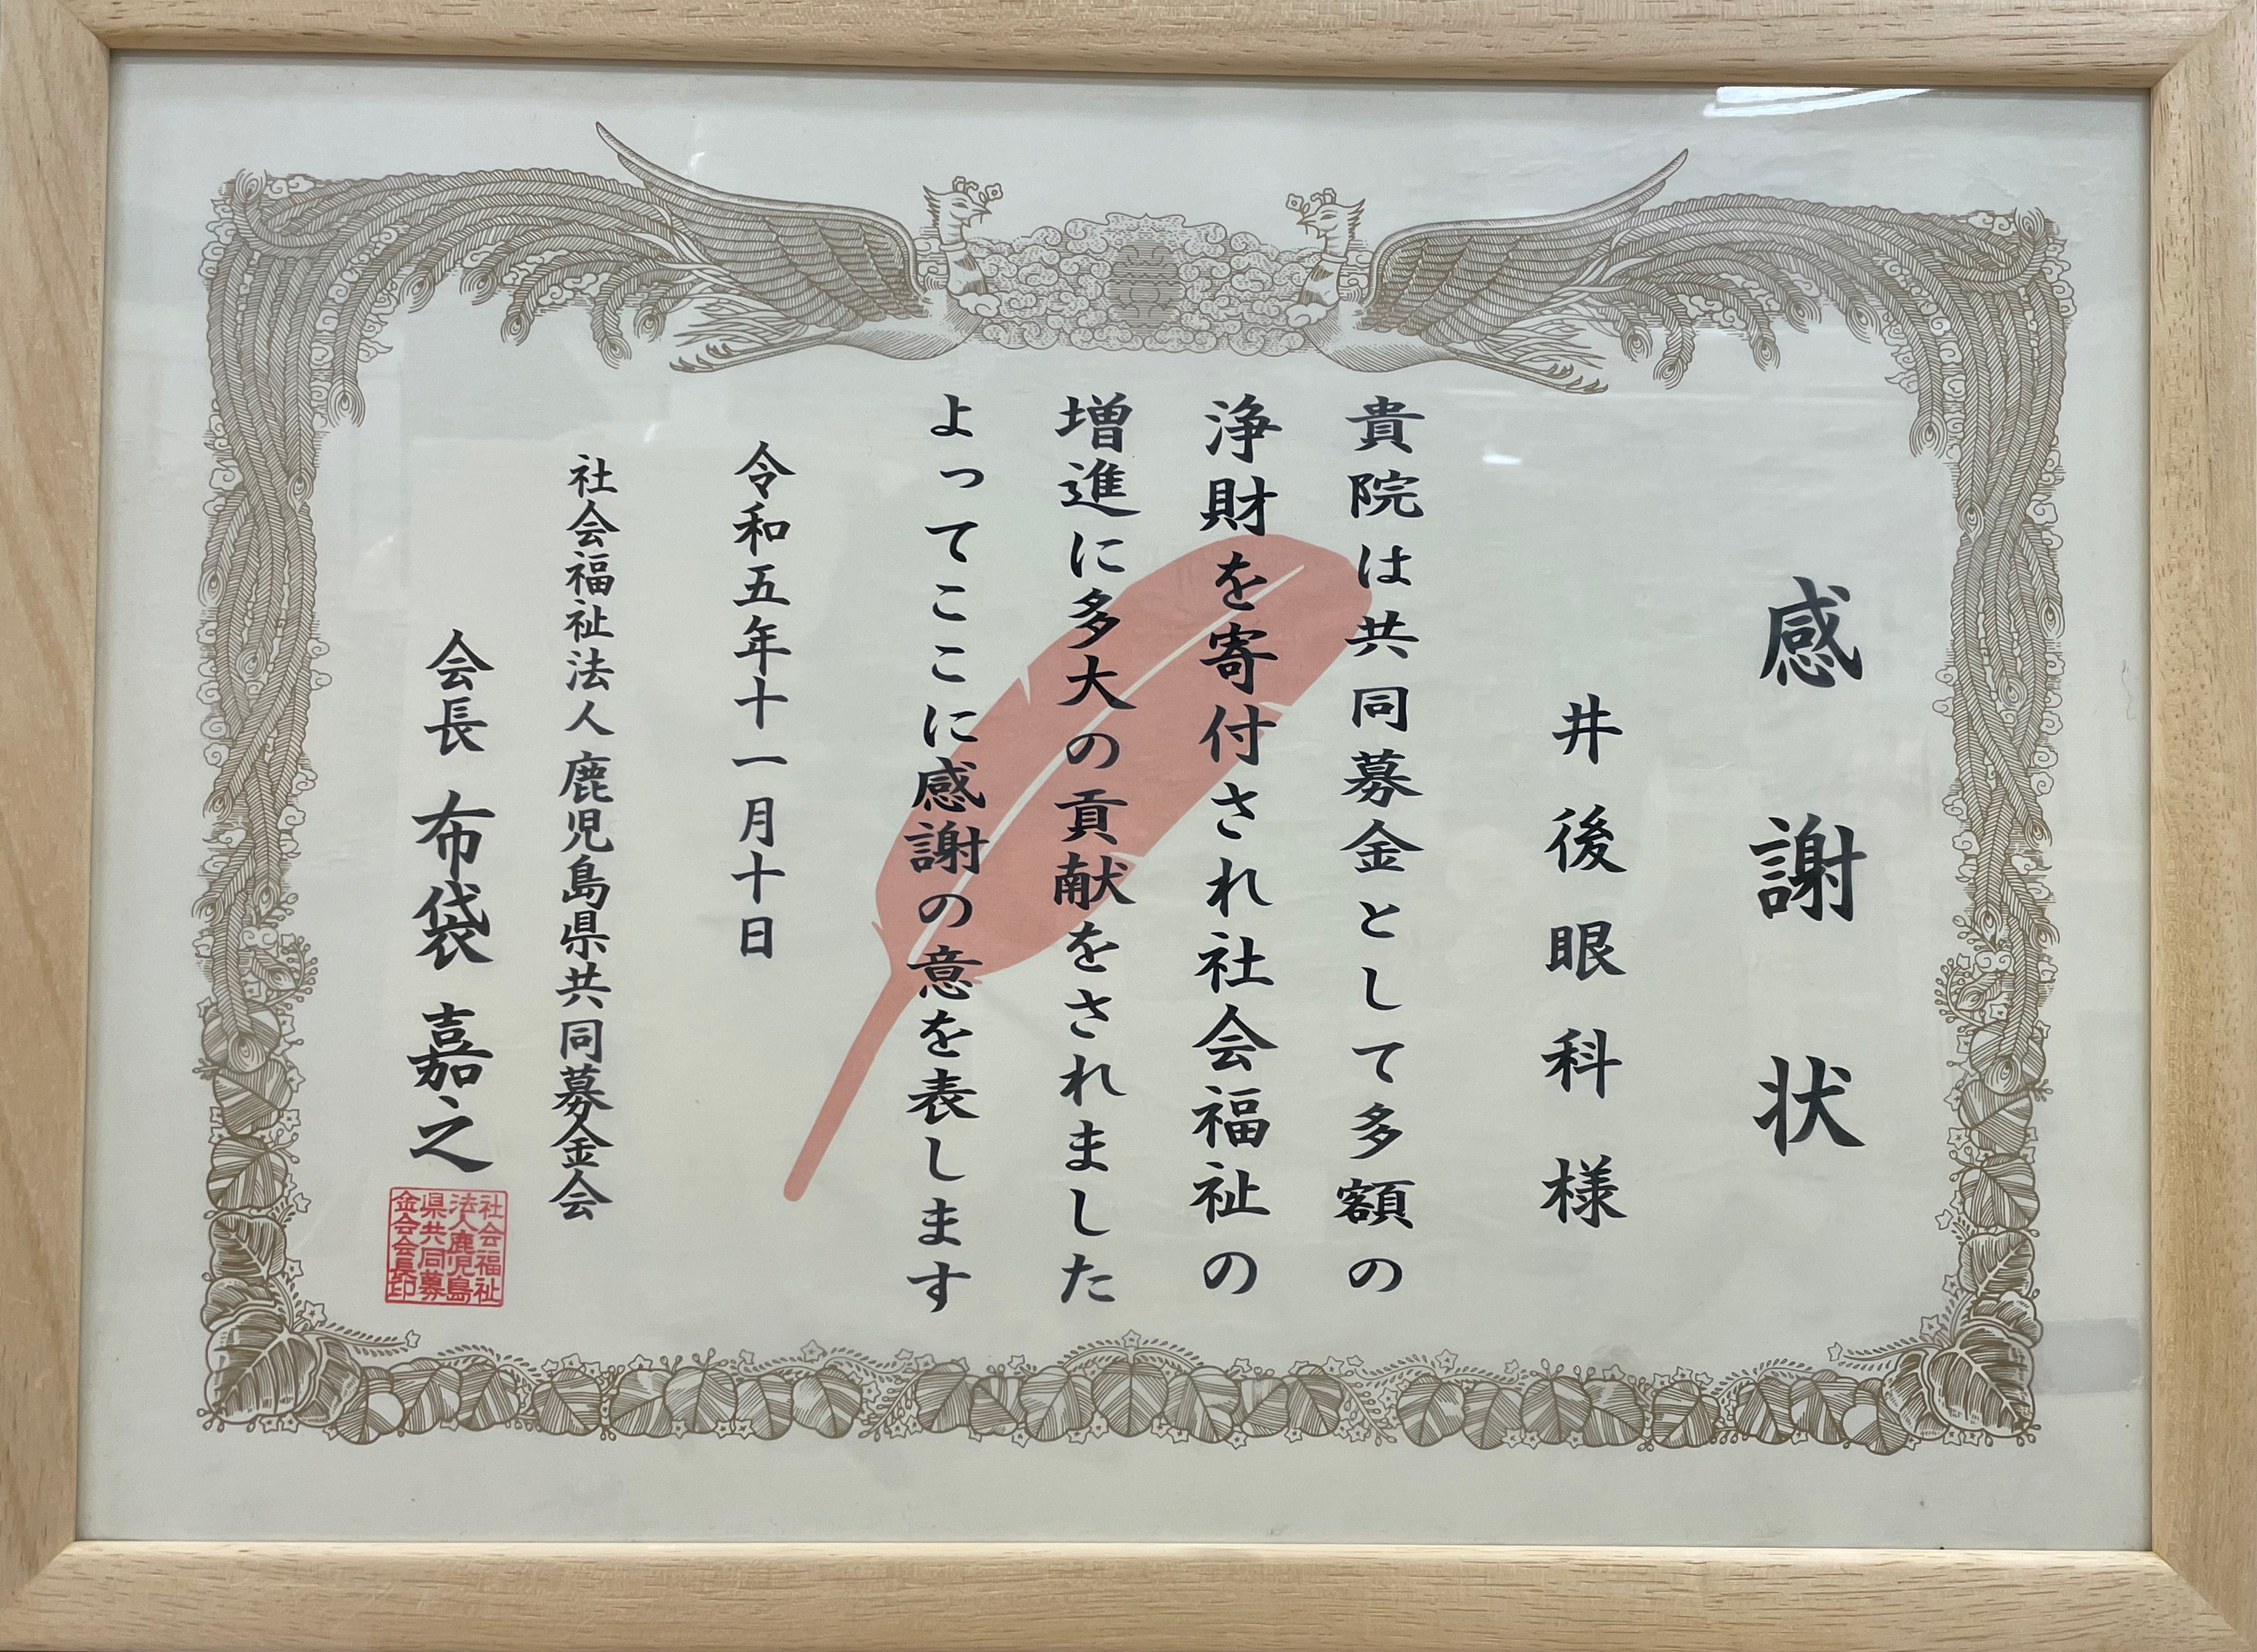 感謝状
井後眼科様
貴院は共同募金として多額の
浄財を寄付され社会福祉の
増進に多大の貢献をされました
よってここに感謝の意を表します
令和五年十一月十日
社会福祉法人鹿児島県共同募金会
会長 布袋嘉之
社会福祉
法人鹿児島
県共同募
金会会長印